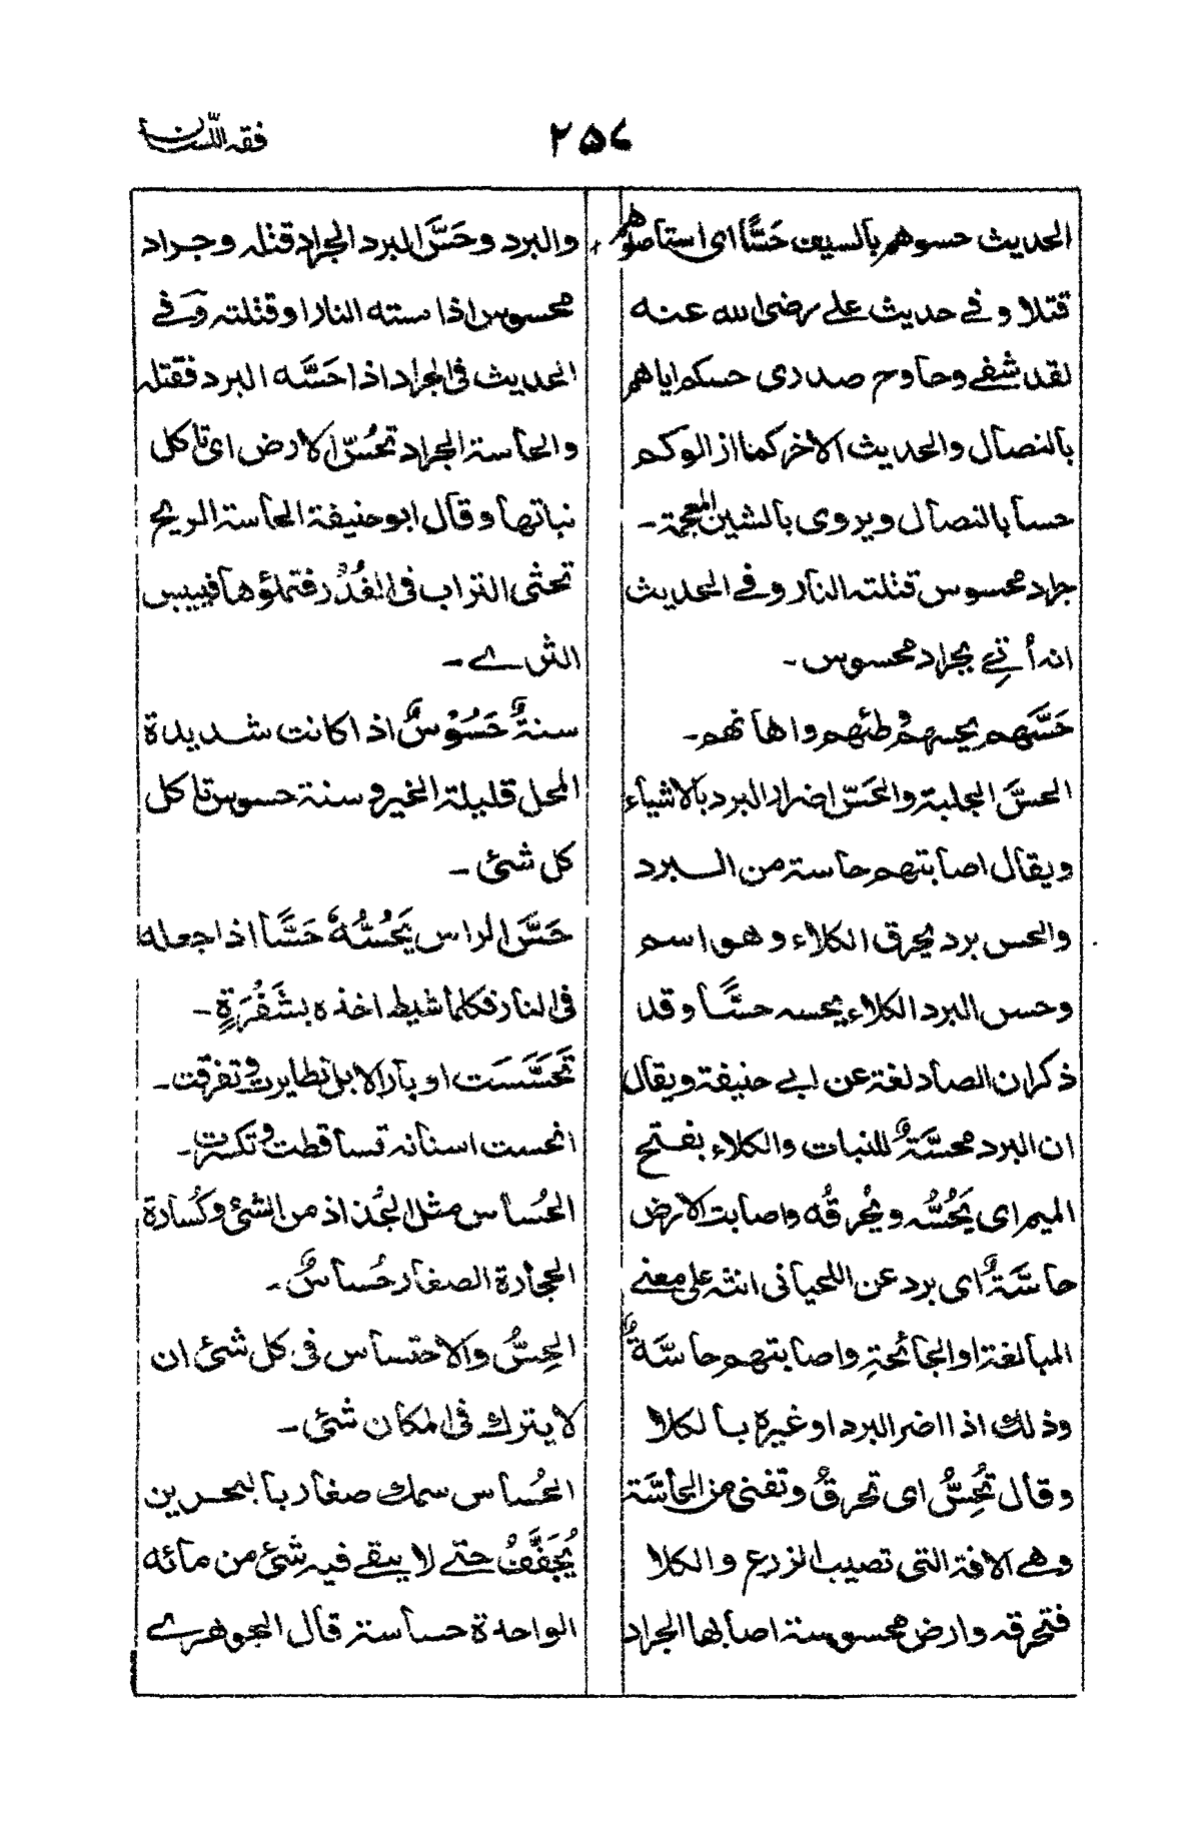 فقه اللسان
٢٥٤
الحديث حسوهم بالسيف حَسًّا ای استاصلوهم
قتلا و فے حدیث علے رضی الله عنه
لقد شفے وحاوح صدری حسکم ایاهم
بالنصال والحدیث الاخر کما ازالوکم
حسا بالنصال ویروی بالشین المعجمة ۔
جراد محسوس قتلته النار و فے الحدیث
انه أُتِےَ بجراد محسوس ۔
حَسَّهم یحسهم وطئهم واهانهم ۔
الحسَّ الجلبة والحَسّ اضرار البرد بالاشیاء
ویقال اصابتهم حاسة من البرد
والحس برد یحرق الکلاء وهو اسم
وحس البرد الکلاء یحسه حسًّا وقد
ذکر ان الصاد لغة عن ابی حنیفة ویقال
ان البرد محسَّةٌ للنبات والکلاء بفتح
المیم ای یَحُسُّه ویُحرقُه واصابت الارض
حاسَّةٌ ای برد عن اللحیانی انثه علی معنے
المبالغة او الجائحةِ واصابتهم حاسَّةٌ
وذلك اذا اضر البرد او غیره بالکلا
وقال تُحِسُّ ای تحرقُ وتفنی من الحاسَّة
وهے الافة التی تصیب الزرع والکلا
فتحرقه وارض محسوسة اصابها الجراد
والبرد وحَسَّ البرد الجراد قتله وجراد
محسوس اذا مسته النار او قتلته وَفے
الحدیث فی الجراد اذا حَسَّه البرد فقتله
والحاسة الجراد تحُسّ الارض ای تاکل
نباتها وقال ابو حنیفة الحاسة الریح
تحثی التراب فی الغُدُر فتملؤها فییبس
الثرے ۔
سنةٌ حَسُوْسٌ اذا کانت شدیدة
المحل قلیلة الخیر وسنة حسوس تاکل
کل شئ ۔
حَسَّ الراس یَحُسُّهٗ حَسًّا اذا جعله
فی النار فکلما شیط اخذه بشَفْرَةٍ ۔
تَحَسَّسَت اوبار الابل تطایرت وتفرقت ۔
انحست اسنانه تساقطت وتکسرت ۔
الحُساس مثل الجُذاذ من الشئ وکُسارة
الحجارة الصغار حُساسٌ ۔
الحِسُّ والاحتساس فی کل شئ ان
لا یترك فی المکان شئ ۔
الحُساس سمك صغار بالبحرین
یُجَفَّفُ حتے لا یبقے فیه شئ من مائه
الواحدة حساسة قال الجوهرے